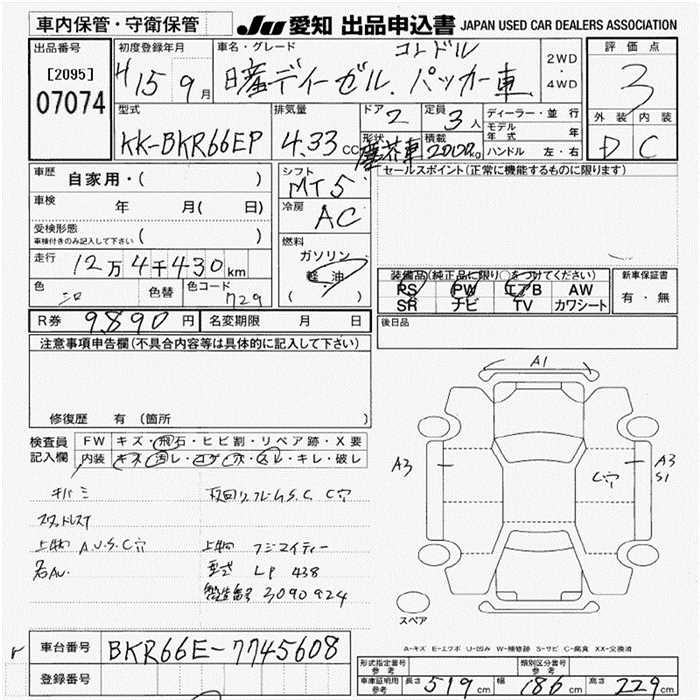 車内保管・守衛保管
JU 愛知 出品申込書 JAPAN USED CAR DEALERS ASSOCIATION
出品番号
[2095]
07074
初度登録年月
H15 9月
車名・グレード
コンドル
日産ディーゼル. パッカー車
2WD
・
4WD
評価点
3
外装 内装
D C
型式
KK-BKR66EP
排気量
4.33 CC
ドア 2
定員 3人
形状 塵芥車
積載 2000kg
ディーラー・並行
モデル年式 年
ハンドル 左・右
車歴 自家用・( )
車検 年 月( 日)
受検形態
車検付きのみ記入して下さい ( )
走行 12万4千430km
色 シロ 色替 色コード 729
シフト
MT5
冷房
AC
燃料
ガソリン
軽油
( )
セールスポイント(正常に機能するものに限ります)
装備品(純正品に限り○をつけてください)
PS PW エアB AW
SR ナビ TV カワシート
新車保証書
有・無
R券 9,890円 名変期限 月 日
後日品
注意事項申告欄(不具合内容等は具体的に記入して下さい)
修復歴 有(箇所 )
検査員記入欄
FW キズ・飛石・ヒビ割・リペア跡・X要
内装 キズ・汚レ・コゲ・穴・スレ・キレ・破レ
キバミ
スタッドレスT
上物 A.U.S.C穴
下回リフレームS.C. C穴
上物 フジマイティー
型式 LP 438
製造番号 3090924
A1
A3
C穴
A3
S1
スペア
A-キズ E-エクボ U-凹み W-補修跡 S-サビ C-腐食 XX-交換済
車台番号 BKR66E-7745608
登録番号
形式指定番号 参考
類別区分番号 参考
車庫証明用 参考 長さ 519cm 幅 186cm 高さ 229cm